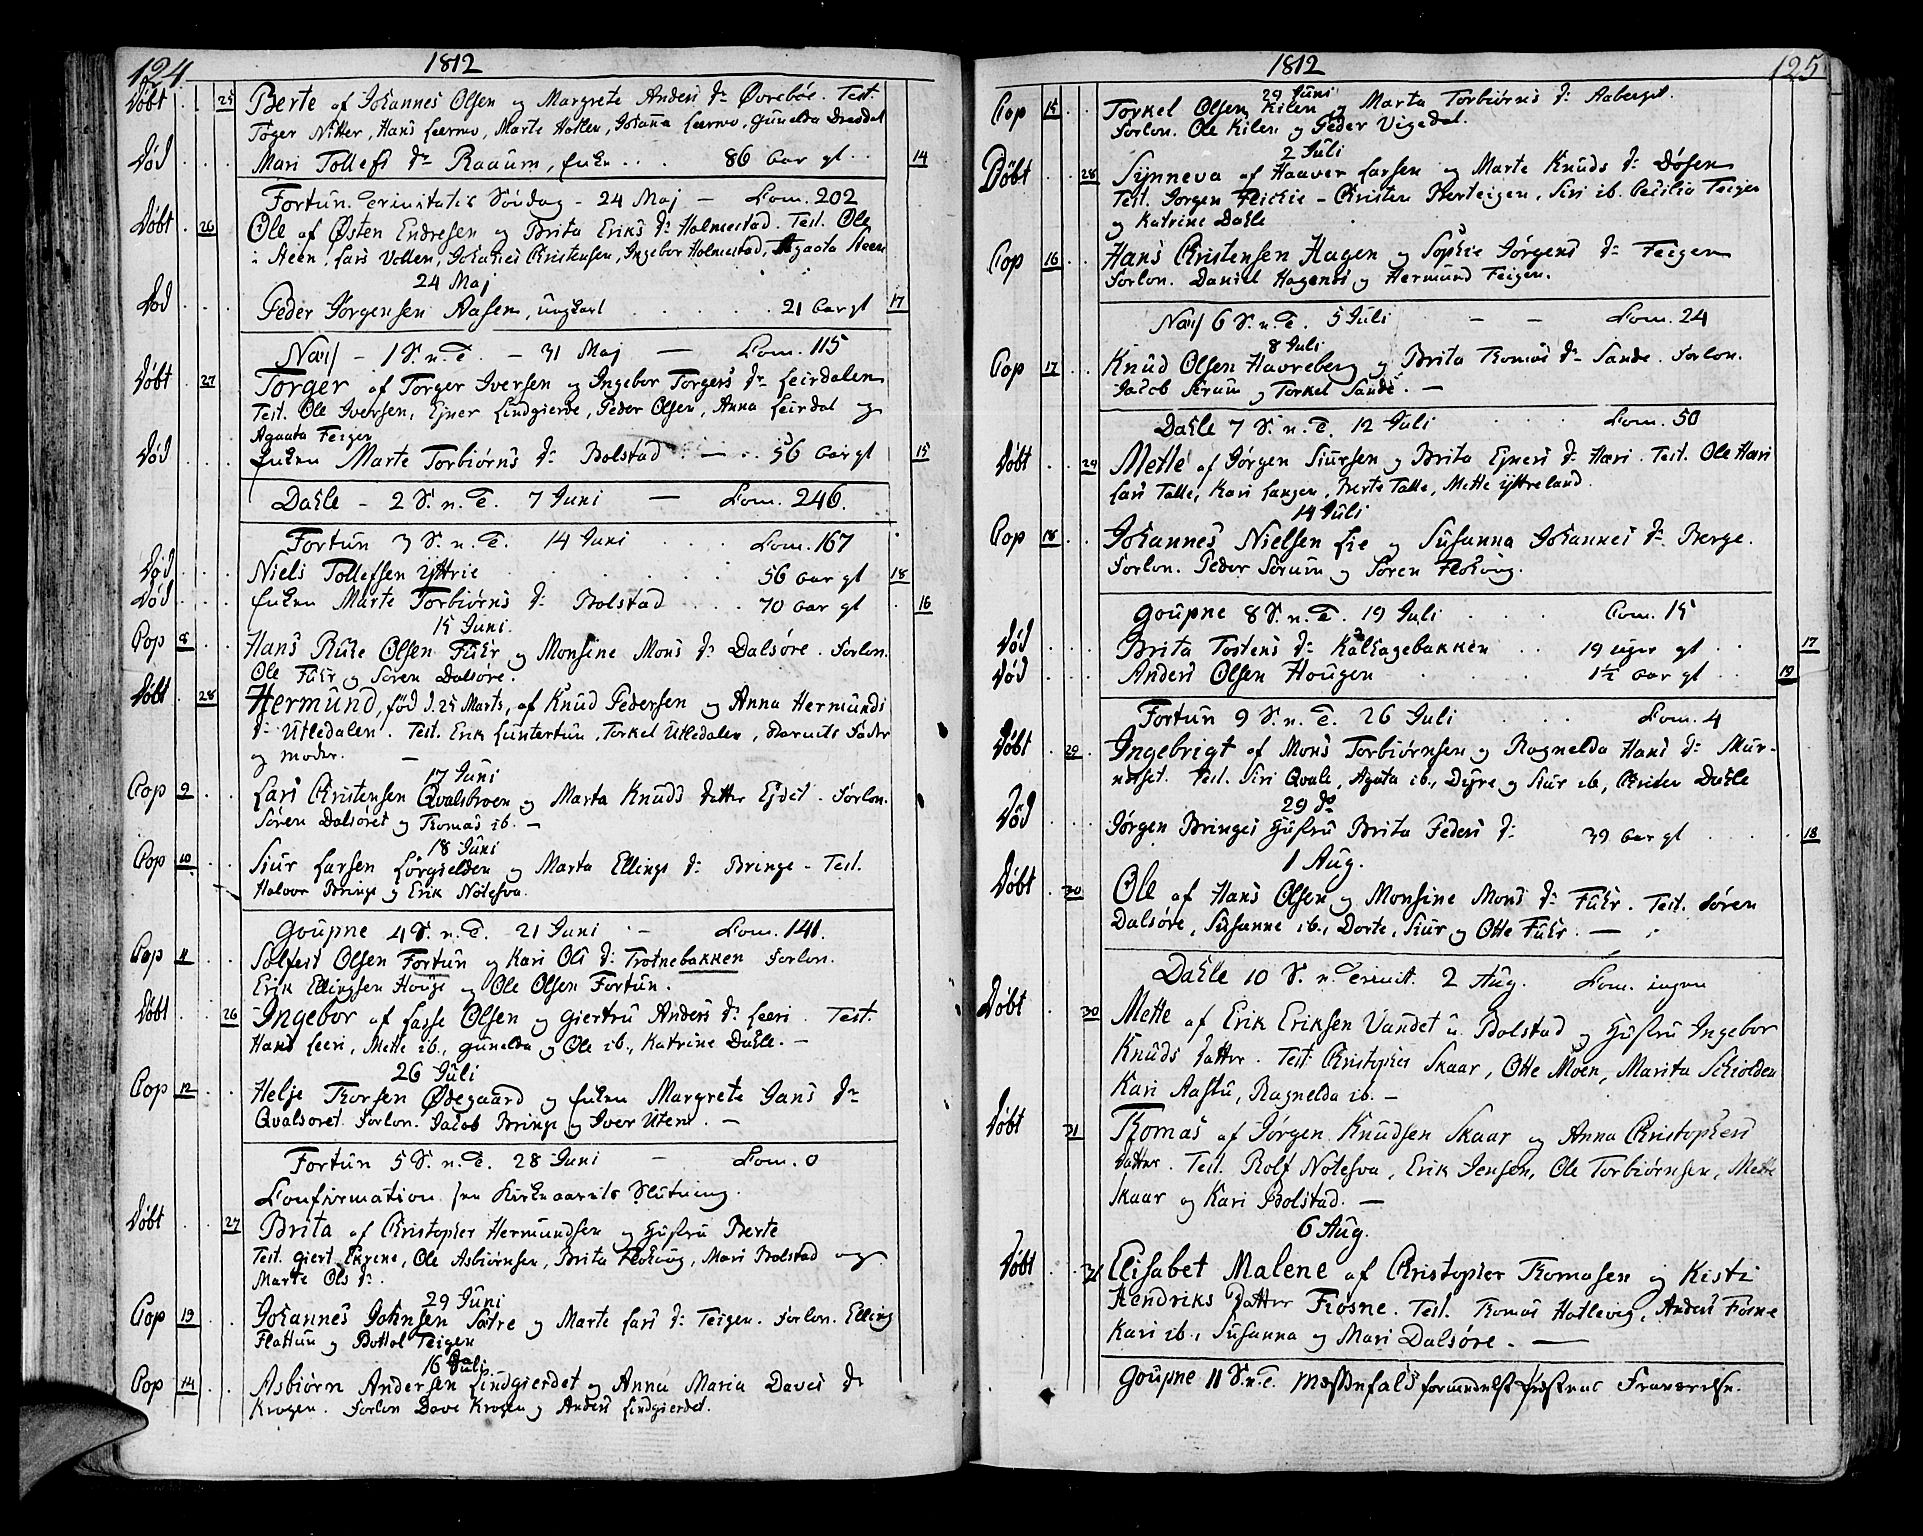 124
1812
Døbt 25 Berte af Johannes Olsen og Margrete Anders Dr Øvrebøe. Test.
Tøger Nitter, Hans Leermo, Marte Hollen, Johanna Leermo, Gunelda Dresdal
Død Mari Tollefs Dr Raaum, Enke . . . 86 aar gl . . 14
Fortun Trinitatis Søndag - 24 Maj - Com. 202
Døbt 26 Ole af Østen Endresen og Brita Eriks Dr Holmestad. Test. Ole
i Steen, Lars Vollen, Johannes Christensen, Ingebor Holmestad, Agaata Steen
24 Maj
Død Peder Jørgensen Aasen, ungkarl . . . 21 aar gl 17
Næss - 1 S. n. T. - 31 Maj - Com. 115
Døbt 27 Torger af Torger Iversen og Ingebor Torgers Dr Leirdalen
Test. Ole Iversen, Ejner Lindgierde, Peder Olsen, Anna Leirdal og
Agaata Feigen
Død Enken Marte Torbiørns Dr Bolstad . - . 56 aar gl 15
Dahle - 2 S. n. T. 7 Juni - Com. 246.
Fortun 3 S. n. T. 14 Juni . . . Com. 167
Død Niels Tollefsen Yttrie . . . 56 aar gl 18
Død Enken Marte Torbiørns Dr Bolstad . . . 70 aar gl . 16
15 Juni.
Cop 8 Hans Rute Olsen Fuhr og Monsine Mons Dr Dalsøre. Forlon.
Ole Fuhr og Søren Dalsøre.
Døbt 28 Hermund, fød d. 25 Marts, af Knud Pedersen og Anna Hermunds
Dr Utledalen. Test. Erik Luntertun, Torkel Utledalen, Barnets Fader
og Moder. -
17 Juni
Cop 9 Lars Christensen Qvalsbroen og Marta Knuds datter Ejdet. Forlon.
Søren Dalsøret og Thomas ib. -
18 Juni
Cop 10 Siur Larsen Lørgielden og Marta Ellings Dr Bringe - Test.
Halvor Bringe og Erik Notesva.
Goupne 4 S. n. T. 21 Juni - Com. 141.
Cop 11 Solfest Olsen Fortun og Kari Ols Dr Trotnebakken Forlon.
Erik Ellingsen Houge og Ole Olsen Fortun.
Døbt 26 Ingebor af Lasse Olsen og Giertru Anders Dr Leeri. Test.
Hans Leeri, Mette ib., Gunelda og Ole ib., Katrine Dahle. -
26 Juli
Cop 12 Helje Thorsen Ødegaard og Enken Margrete Jans Dr
Qvalsoret. Forlon. Jacob Bringe og Iver Utene. -
Fortun 5 S. n. T. 28 Juni - Com. 0
Confirmation fra Kirkeaarets Slutning.
Døbt 27 Brita af Christopher Hermundsen og Hustru Berte
Test. Giert Ekrene, Ole Asbiørnsen, Brita Flohoug, Mari Bolstad og
Marte Ols Dr.
29 Juni
Cop 13 Johannes Johnsen Sætre og Marte Lars Dr Teigen. Forlon. Elling
Flattun og Bottol Teigen
16 Juli
Cop 14 Asbiørn Andersen Lindgierdet og Anna Maria Daves Dr
Krogen. Forlon Dave Krogen og Anders Lindgierdet.
1812
125
29 Juni
Cop 15 Torkel Olsen Kilen og Marta Torbiørns Dr Aaberget.
Forlon. Ole Kilen og Peder Vigedal.
2 Juli
Døbt 28 Synneva af Haaver Larsen og Marte Knuds Dr Døsen
Test. Jørgen Flickie - Christen Berteigen, Siri ib. Cecilia Teigen
og Katrine Dahle
Cop 16 Hans Christensen Hagen og Sophie Jørgens Dr Feigen
Forlon. Daniel Hagenes og Hermund Feigen.
Næss 6 S. n. T. 5 Juli - - Com. 24
8 Juli
Cop 17 Knud Olsen Havreberg og Brita Thomas Dr Sande. Forlon.
Jacob Sørum og Torkel Sande. -
Dahle 7 S. n. T. 12 Juli . . Com. 50
Døbt 29 Mette af Jørgen Siursen og Brita Ejners Dr Hæri. Test. Ole Hæri
Lars Talle, Kari Langen, Berte Talle, Mette Yttreland.
14 Juli
Cop 18 Johannes Nielsen Lie og Susanna Johannes Dr Berge.
Forlon. Peder Sørum og Søren Flohoug.
Goupne 8 S. n. T. 19 Juli . . . Com. 15
Død Brita Tostens Dr Kalhagebakken . . 19 uger gl . . 17
Død Anders Olsen Hougen . . . 1½ aar gl . . 19
Fortun 9 S. n. T. 26 Juli . . . Com. 4
Døbt 29 Ingebrigt af Mons Torbiørnsen og Ragnelda Hans Dr Mur-
næset. Test. Siri Qvale, Agata ib., Dyre og Siur ib., Christen Dahle
29 do
Død Jørgen Bringes Hustru Brita Peders Dr 39 aar gl . . . 18
1 Aug.
Døbt 30 Ole af Hans Olsen og Monsine Mons Dr Fuhr. Test. Søren
Dalsøre, Susanne ib., Dorte, Siur og Otte Fuhr. -
Dahle 10 S. n. Trinit. 2 Aug. Com. ingen
Døbt 30 Mette af Erik Eriksen Vandet u. Bolstad og Hustru Ingebor
Knuds Datter. Test. Christopher Skaar, Otte Moen, Marita Schiolden
Kari Aastu, Ragnelda ib. -
Døbt 31 Thomas af Jørgen Knudsen Skaar og Anna Christophers
datter. Test. Rolf Notesva, Erik Jensen, Ole Torbiørnsen, Mette
Skaar og Kari Bolstad. -
6 Aug.
Døbt 31 Elisabet Malene af Christopher Thomasen og Kisti
Hendriks Datter Frøsne. Test. Thomas Hatlevig, Anders Frøsne
Kari ib., Susanna og Mari Dalsøre. -
Goupne 11 S. n. T. Messefald formedelst Præstens Fraværelse.